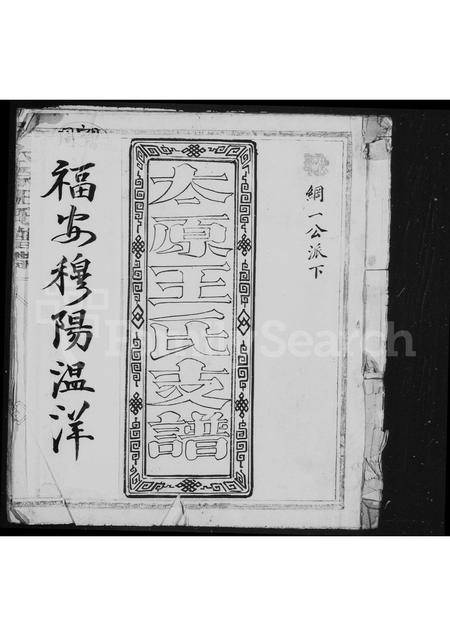 綱一公派下
太原王氏支譜
福安穆陽溫洋